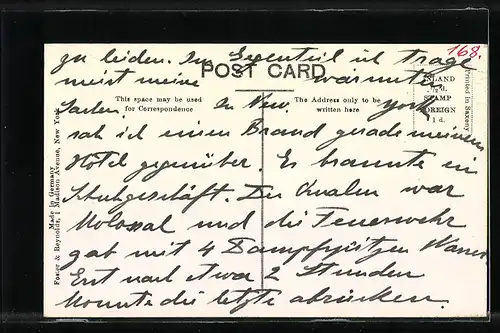 168.
zu leiden. Im Gegenteil ich trage
POST CARD
meist meine wärmste
INLAND
½ d.
STAMP
FOREIGN
1 d.
Printed in Saxony
This space may be used
for Correspondence
The Address only to be
written here
Sachen. In New. york
sah ich einen Brand gerade meinem
Hotel gegenüber. Es brannte in
Schuhgeschäft. Der Qualm war
Kolossal und die Feuerwehr
gab mit 4 Dampfspritzen Wasser.
Erst nach etwa 2 Stunden
Konnte die letzte abrücken.
Made in Germany
Foster & Reynolds, 1 Madison Avenue, New York